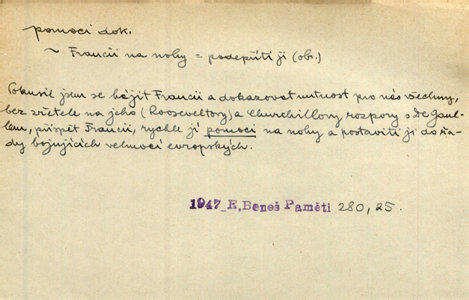 pomoci dok.
~ Francii na nohy = podepříti ji (ob.)
Pokusil jsem se hájit Francii a dokazovat nutnost pro nás všechny,
bez zřetele na jeho (Rooseveltovy) a Churchillovy rozpory s De Gaul-
lem, přispět Francii, rychle jí pomoci na nohy a postaviti ji do řa-
dy bojujících velmocí evropských.
1947 E. Beneš Paměti 280, 25.